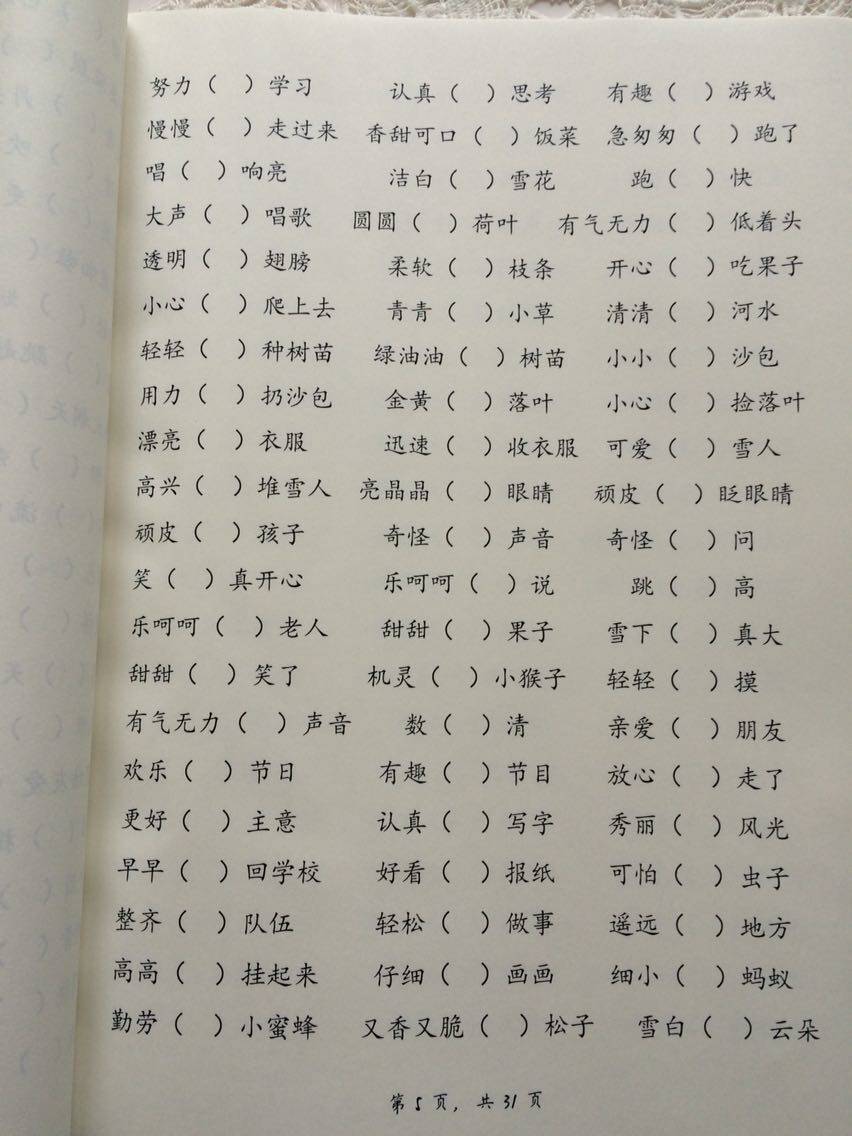 努力（ ）学习 认真（ ）思考 有趣（ ）游戏
慢慢（ ）走过来 香甜可口（ ）饭菜 急匆匆（ ）跑了
唱（ ）响亮 洁白（ ）雪花 跑（ ）快
大声（ ）唱歌 圆圆（ ）荷叶 有气无力（ ）低着头
透明（ ）翅膀 柔软（ ）枝条 开心（ ）吃果子
小心（ ）爬上去 青青（ ）小草 清清（ ）河水
轻轻（ ）种树苗 绿油油（ ）树苗 小小（ ）沙包
用力（ ）扔沙包 金黄（ ）落叶 小心（ ）捡落叶
漂亮（ ）衣服 迅速（ ）收衣服 可爱（ ）雪人
高兴（ ）堆雪人 亮晶晶（ ）眼睛 顽皮（ ）眨眼睛
顽皮（ ）孩子 奇怪（ ）声音 奇怪（ ）问
笑（ ）真开心 乐呵呵（ ）说 跳（ ）高
乐呵呵（ ）老人 甜甜（ ）果子 雪下（ ）真大
甜甜（ ）笑了 机灵（ ）小猴子 轻轻（ ）摸
有气无力（ ）声音 数（ ）清 亲爱（ ）朋友
欢乐（ ）节日 有趣（ ）节目 放心（ ）走了
更好（ ）主意 认真（ ）写字 秀丽（ ）风光
早早（ ）回学校 好看（ ）报纸 可怕（ ）虫子
整齐（ ）队伍 轻松（ ）做事 遥远（ ）地方
高高（ ）挂起来 仔细（ ）画画 细小（ ）蚂蚁
勤劳（ ）小蜜蜂 又香又脆（ ）松子 雪白（ ）云朵
第 5 页，共 31 页